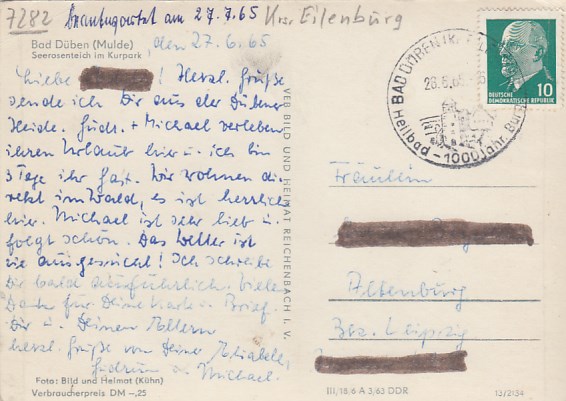 7282
Beantwortet am 27.7.65 Krs. Eilenburg
Bad Düben (Mulde)
Seerosenteich im Kurpark
, den 27.6.65
Liebe ! Herzl. Grüße
sende ich Dir aus der Dübener
Heide. Gudr. + Michael verleben
ihren Urlaub hier u. ich bin
3 Tage ihr Gast. Wir wohnen di-
rekt im Wald, es ist herrlich
hier. Michael ist sehr lieb u.
folgt schön. Das Wetter ist
wie ausgesucht! Ich schreibe
Dir bald ausführlich. Vielen
Dank für Deine Karte u. Brief.
Dir u. Deinen Eltern
herzl. Grüße von Deiner
Gudrun u. Michael.
Foto: Bild und Heimat (Kühn)
Verbraucherpreis DM -,25
VEB BILD UND HEIMAT REICHENBACH I. V.
BAD DÜBEN
28.6.65
Heilbad - 1000jähr. Burg
10
DEUTSCHE
DEMOKRATISCHE REPUBLIK
Fräulein
Altenburg
Bez. Leipzig
III/18/6 A 3/63 DDR
13/2134